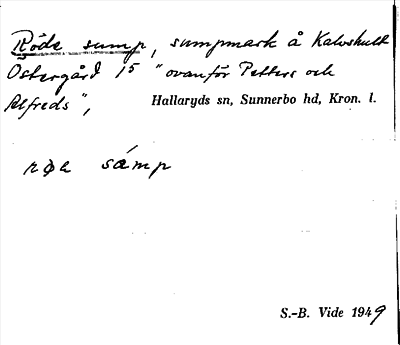 Röde sump, sumpmark å Kalvshult
Östergård 15 "ovanför Petters och
Alfreds",
Hallaryds sn, Sunnerbo hd, Kron. l.
røe sámp
S.-B. Vide 1949